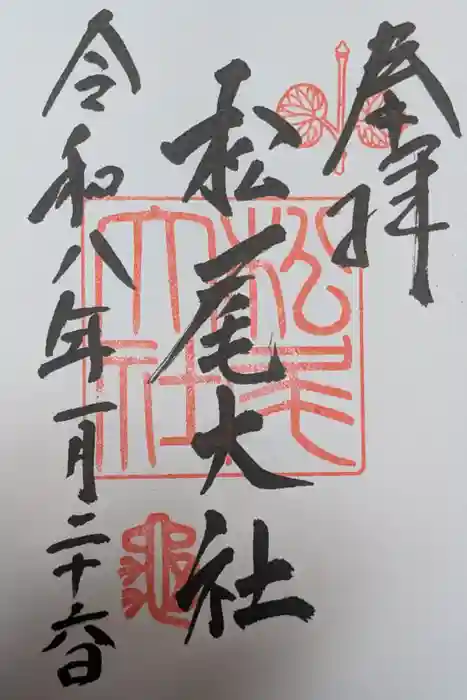 奉拝
松尾大社
令和八年一月二十六日
松尾大社